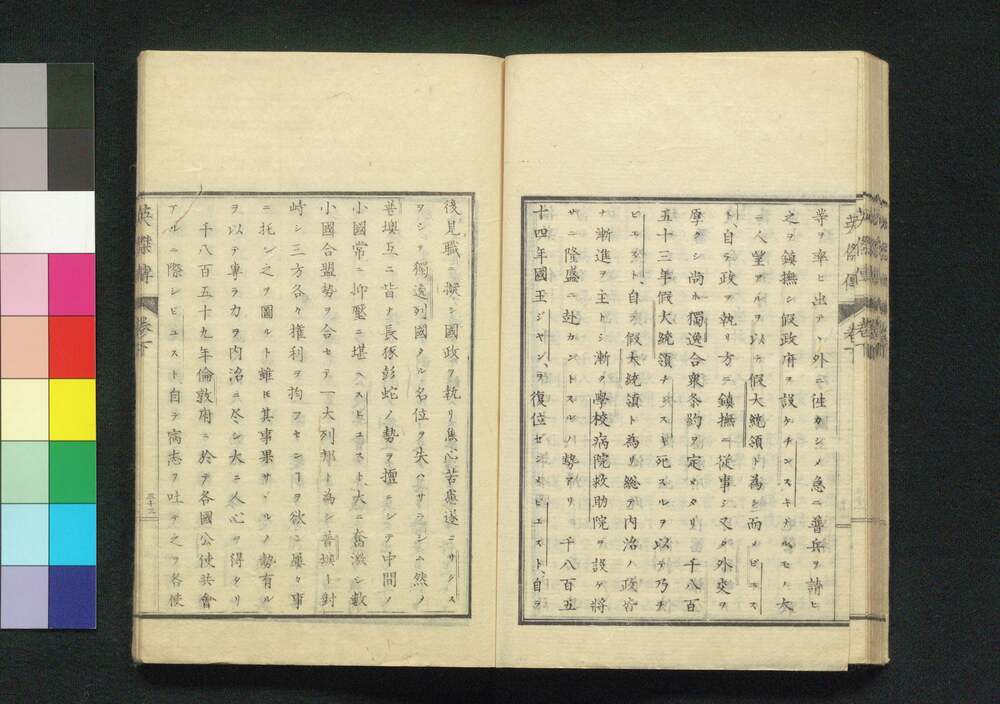 等ヲ率ヒ出テヽ外ニ徃カシメ急ニ普兵ヲ請ヒ
之ヲ鎮撫シ假政府ヲ設ケチンスキルセモ大
ニ人望アルヲ以テ假大統領ト為シ而メビユス
ト、自ラ政ヲ執リ方ニ鎮撫ニ従事シ又タ外交ヲ
厚クシ尚ホ獨逸合衆条約ヲ定メタリ千八百
五十三年假大統領チンスキ死スルヲ以テ乃チ
ビユスト、自ラ假大統領ト為リ総テ内治ノ政皆
ナ漸進ヲ主トシ漸ク學校病院救助院ヲ設ケ将
サニ隆盛ニ赴カントスルノ勢アリ千八百五
十四年國王ジヤン、ヲ復位セシメビユスト、自ラ
後見職ニ擬シ國政ヲ執リ焦心苦慮遂ニサクス
ヲシテ獨逸列國タル名位ヲ失ハサラシム然ノ
普墺互ニ皆ノ長豕彭蛇ノ勢ヲ擅ニシテ中間ノ
小國常ニ抑壓ニ堪ヘスビユスト、大ニ奮激シ数
小國合盟勢ヲ合セテ一大列邦ト為シ普墺ト對
峙シ三方各々権利ヲ拘フセシヿヲ欲シ屢々事
ニ托シ之ヲ圖ルト雖ㇳモ其事果サヾルノ勢有ル
ヲ以テ専ラ力ヲ内治ニ尽シ大ニ人心ヲ得タリ
千八百五十九年倫敦府ニ於テ各國公使共會
アルニ際シビユスト自ラ寓志ヲ吐テ之ヲ各使
英傑傳
卷下
三十三